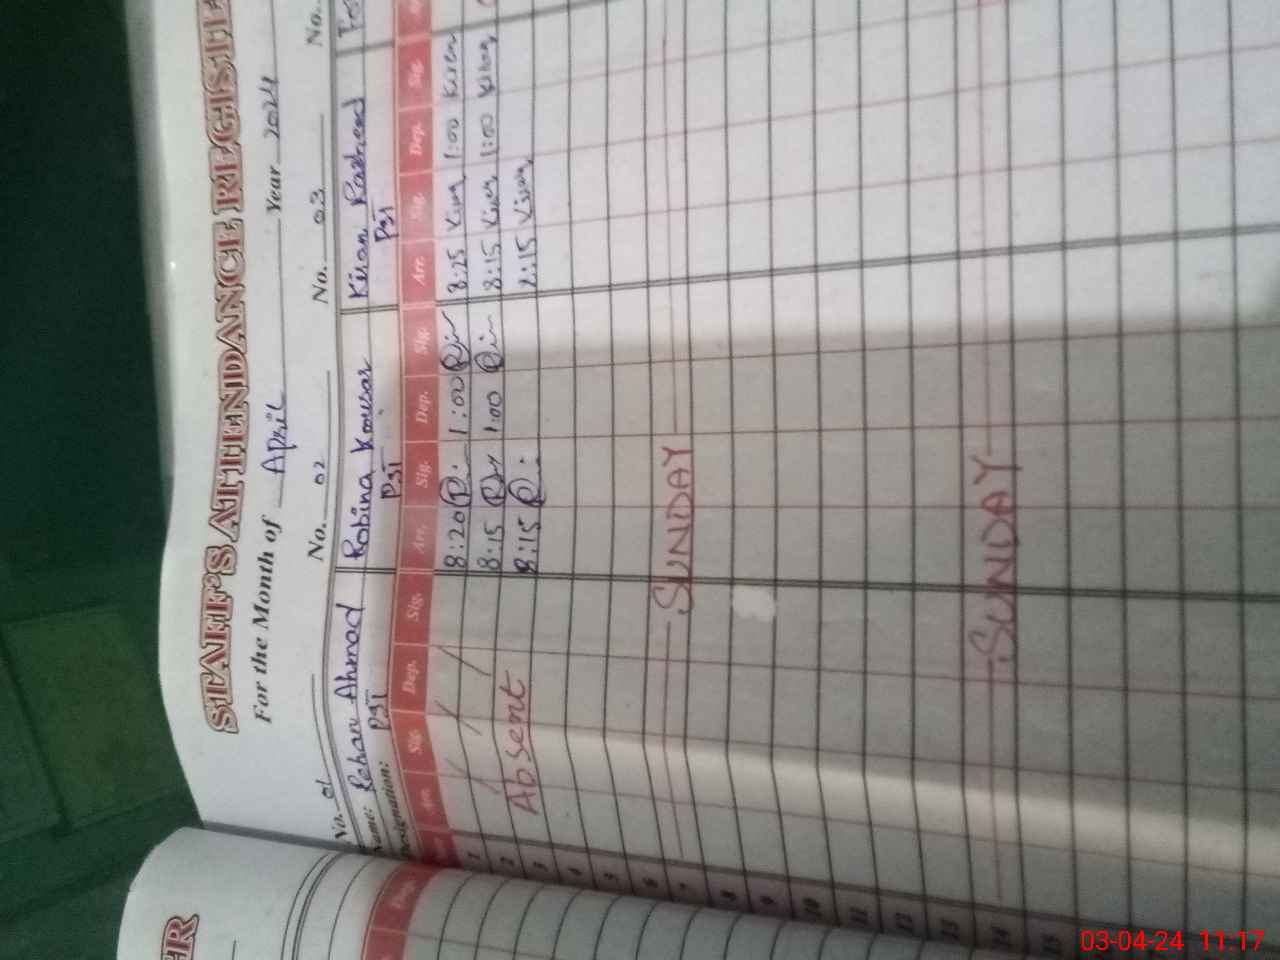 STAFF'S ATTENDANCE REGISTE
For the Month of April Year 2024
No. 01 No. 02 No. 03 No.
Name: Rehan Ahmad Robina Kousar Kiran Rasheed
Designation: PST PST PST
Arr. Sig. Dep. Sig. Arr. Sig. Dep. Sig. Arr. Sig. Dep. Sig.
1 8:20 1:00 8:25 Kiran 1:00 Kiran
2 8:15 1:00 8:15 Kiran 1:00 Kiran
3 Absent 8:15 8:15 Kiran
4
5
6
7 SUNDAY
8
9
10
11
12
13
14 SUNDAY
15
03-04-24 11:17